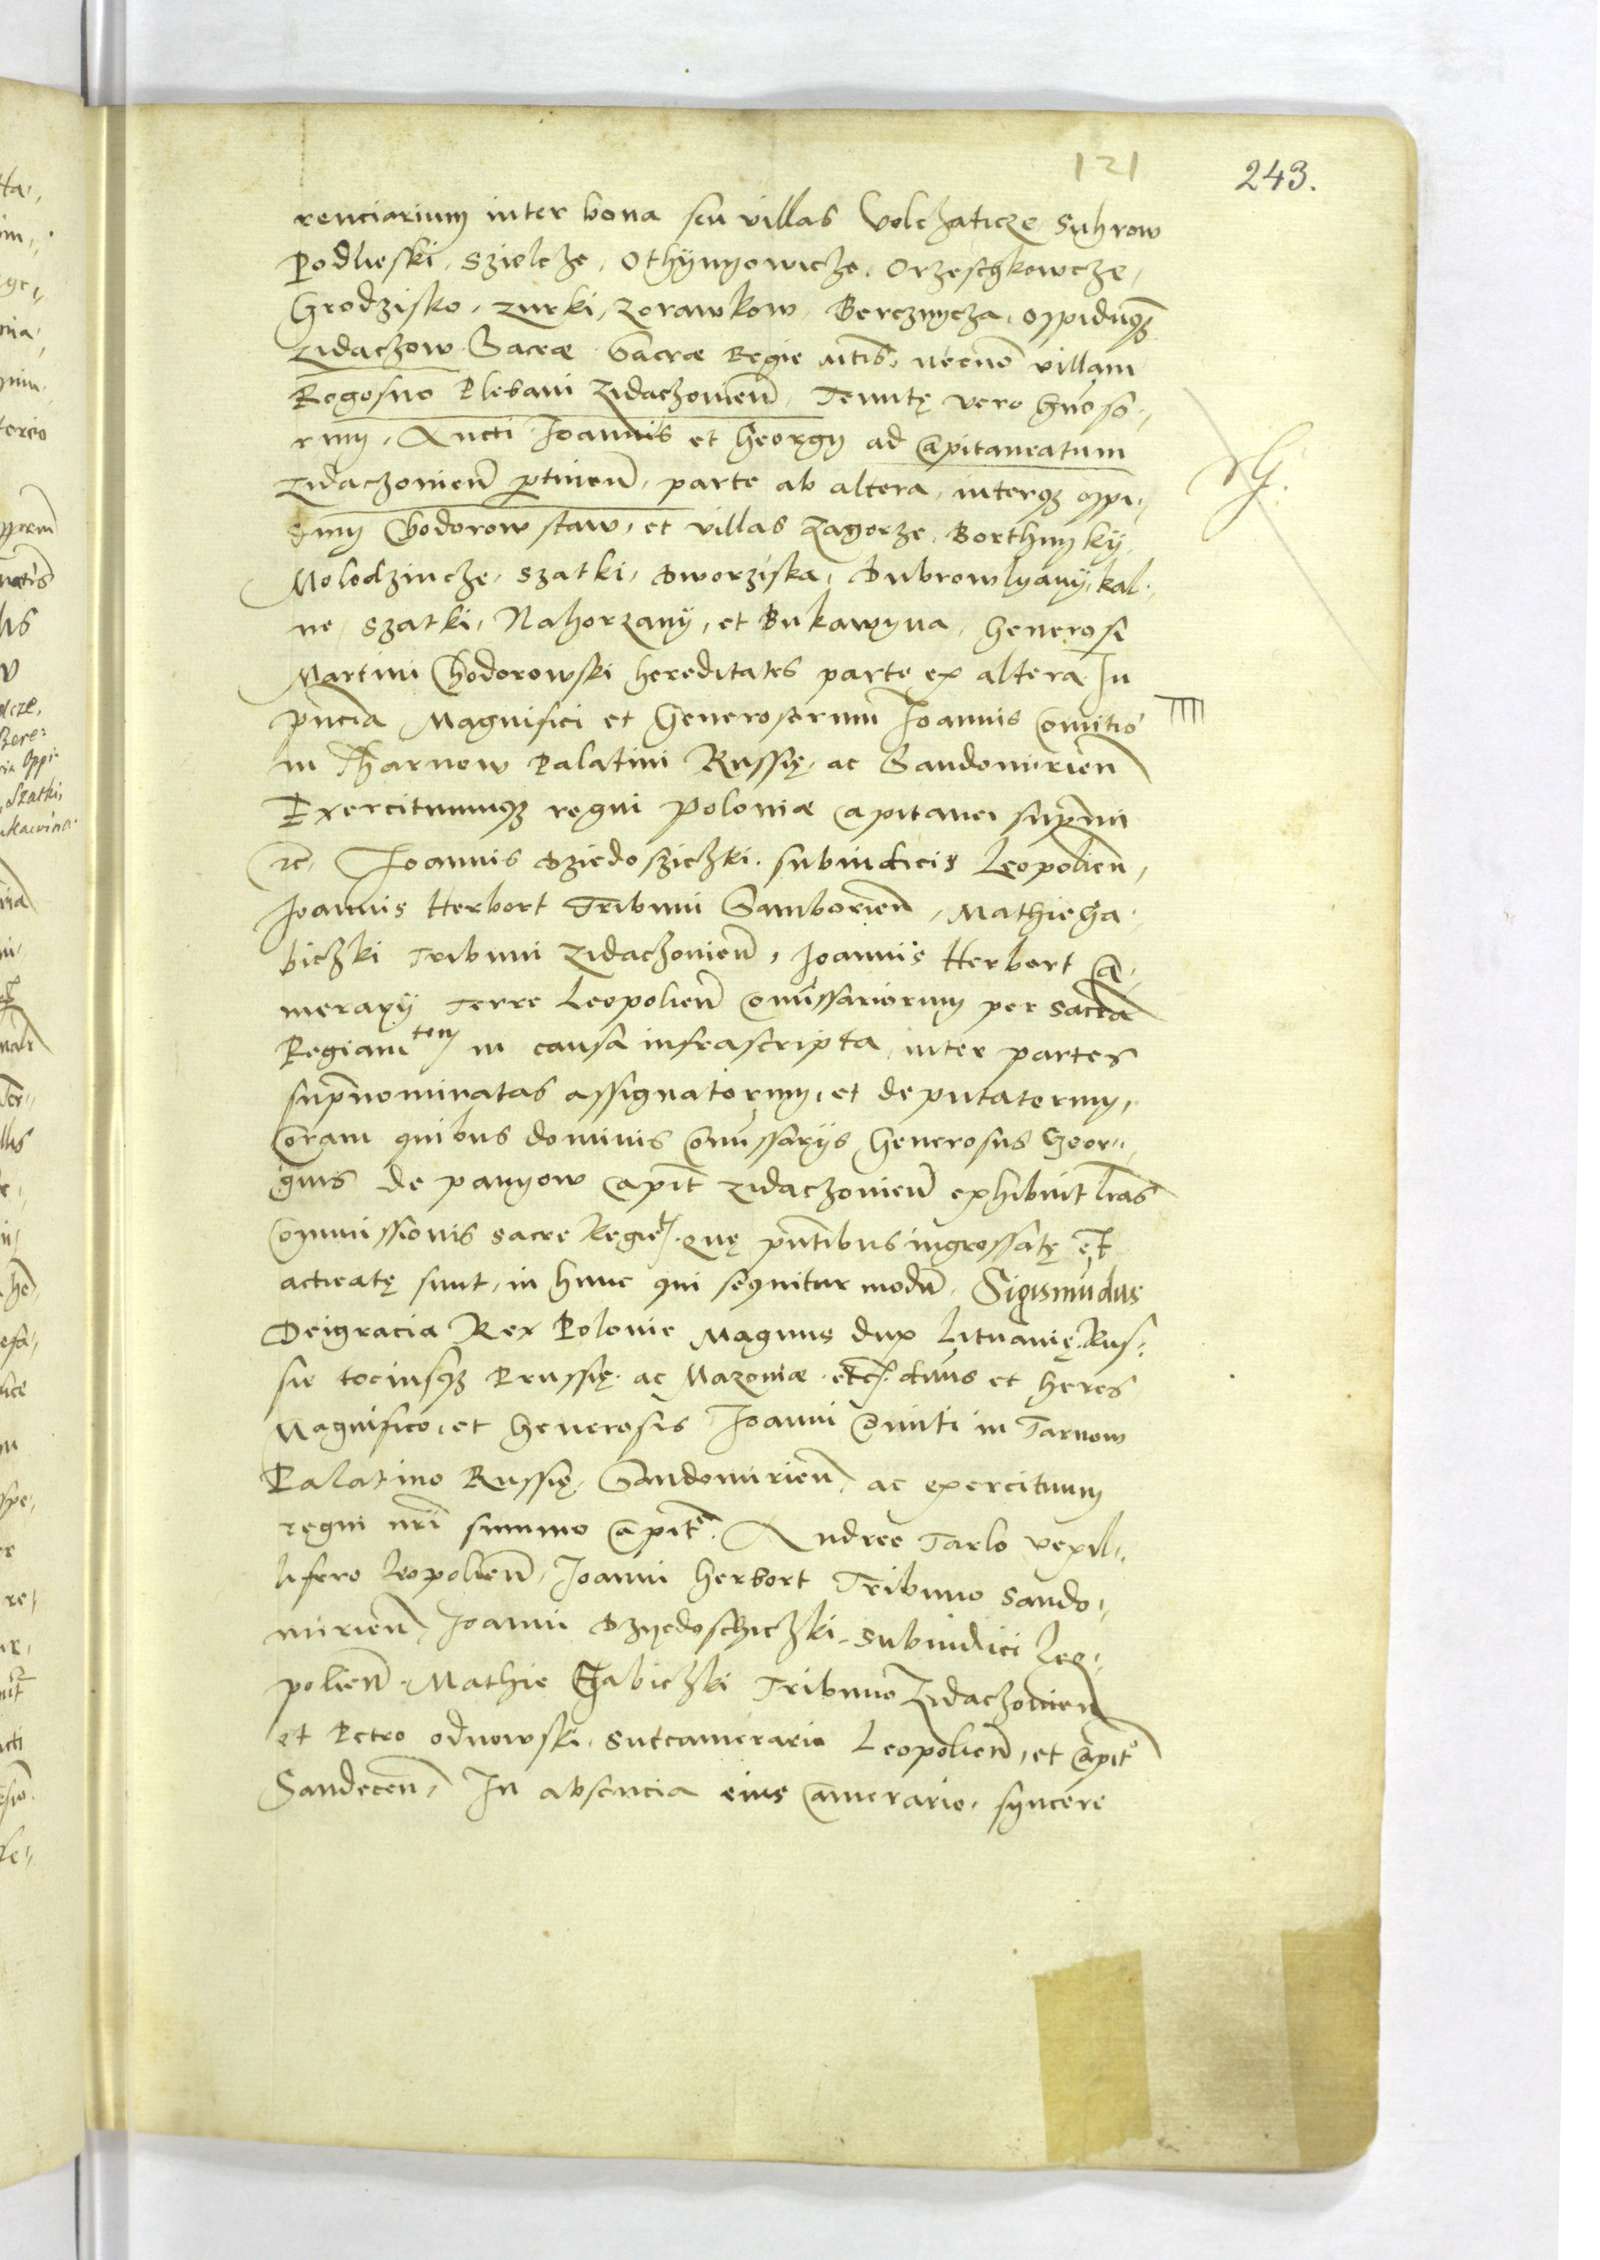 121
243.
renciarium inter bona seu villas Volchaticze Suhrow
Podlieski, Szielcze, Othÿnyowicze, Orzeschkowcze,
Grodzisko, Zurki, Zorawkow, Bercznycza, oppidūq₃
Zidaczow Sacræ Sacræ Regie mtis, necnō villam
Rogosno Plebani Zidaczowien̄, Tenutę vero gn̄oso„
rum, Aucti Joannis et Georgy ad Capitaneatum
Zidaczowien̄ ptinen̄, parte ab altera, interq₃ oppi„
dum Chodorow staw, et villas Zagorze, Borthnykÿ,
Molodzincze, Szatki, Dworziska, Dubrowlyanÿ, kal„
ne, Szatki, Nahorzanÿ, et Bukawyna, Generosi
Martini Chodorowski hereditates parte ex altera In
pn̄cia Magnifici et Generosorum Joannis Comitis
in Tharnow Palatini Russię, ac Sandomirien̄
Exercituumq₃ regni Poloniæ Capitanei sup̄mi
etc̄, Joannis Dziedosziczki, subiudicis Leopolien̄,
Joannis Herbort Tribuni Samborien̄, Mathie Ga„
biczki Tribuni Zidaczowien̄, Joannis Herbort Ca„
merarÿ Terre Leopolien̄ Com̄issariorum per Sacrā
Regiam tem in causa infrascripta, inter partes
sup̄nominatas assignatorum, et deputatorum,
Coram quibus dominis Com̄issarÿs Generosus Geor„
gius de Panyow Capit̄ Zidaczowien̄ exhibuit lr̄as
Commissionis sacre Regie t, quę pn̄tibus ingrossatę et
acticatę sunt, in hunc qui sequitur modū, Sigismūdus
Dei gracia Rex Polonie Magnus dux Lituanię, Rus„
sie tociusq₃ Prussię, ac Mazoviæ etc̄, dn̄us et heres
Magnifico, et Generosis Joanni Comiti in Tarnow
Palatino Russię, Sandomirien̄, ac exercituum
regni nr̄i summo Capite᷑, Andree Tarlo vexil„
lifero Leopolien̄, Joanni Herbort Tribuno Sando„
mirien̄, Joanni Dzyedoschiczki, Subiudici Leo„
polien̄, Mathie Gabiczki Tribuno Zidaczowien̄
et Petro Odnowski, Succamerario Leopolien̄, et Capit̄o
Sandecen̄, In absencia eius Camerario, syncere